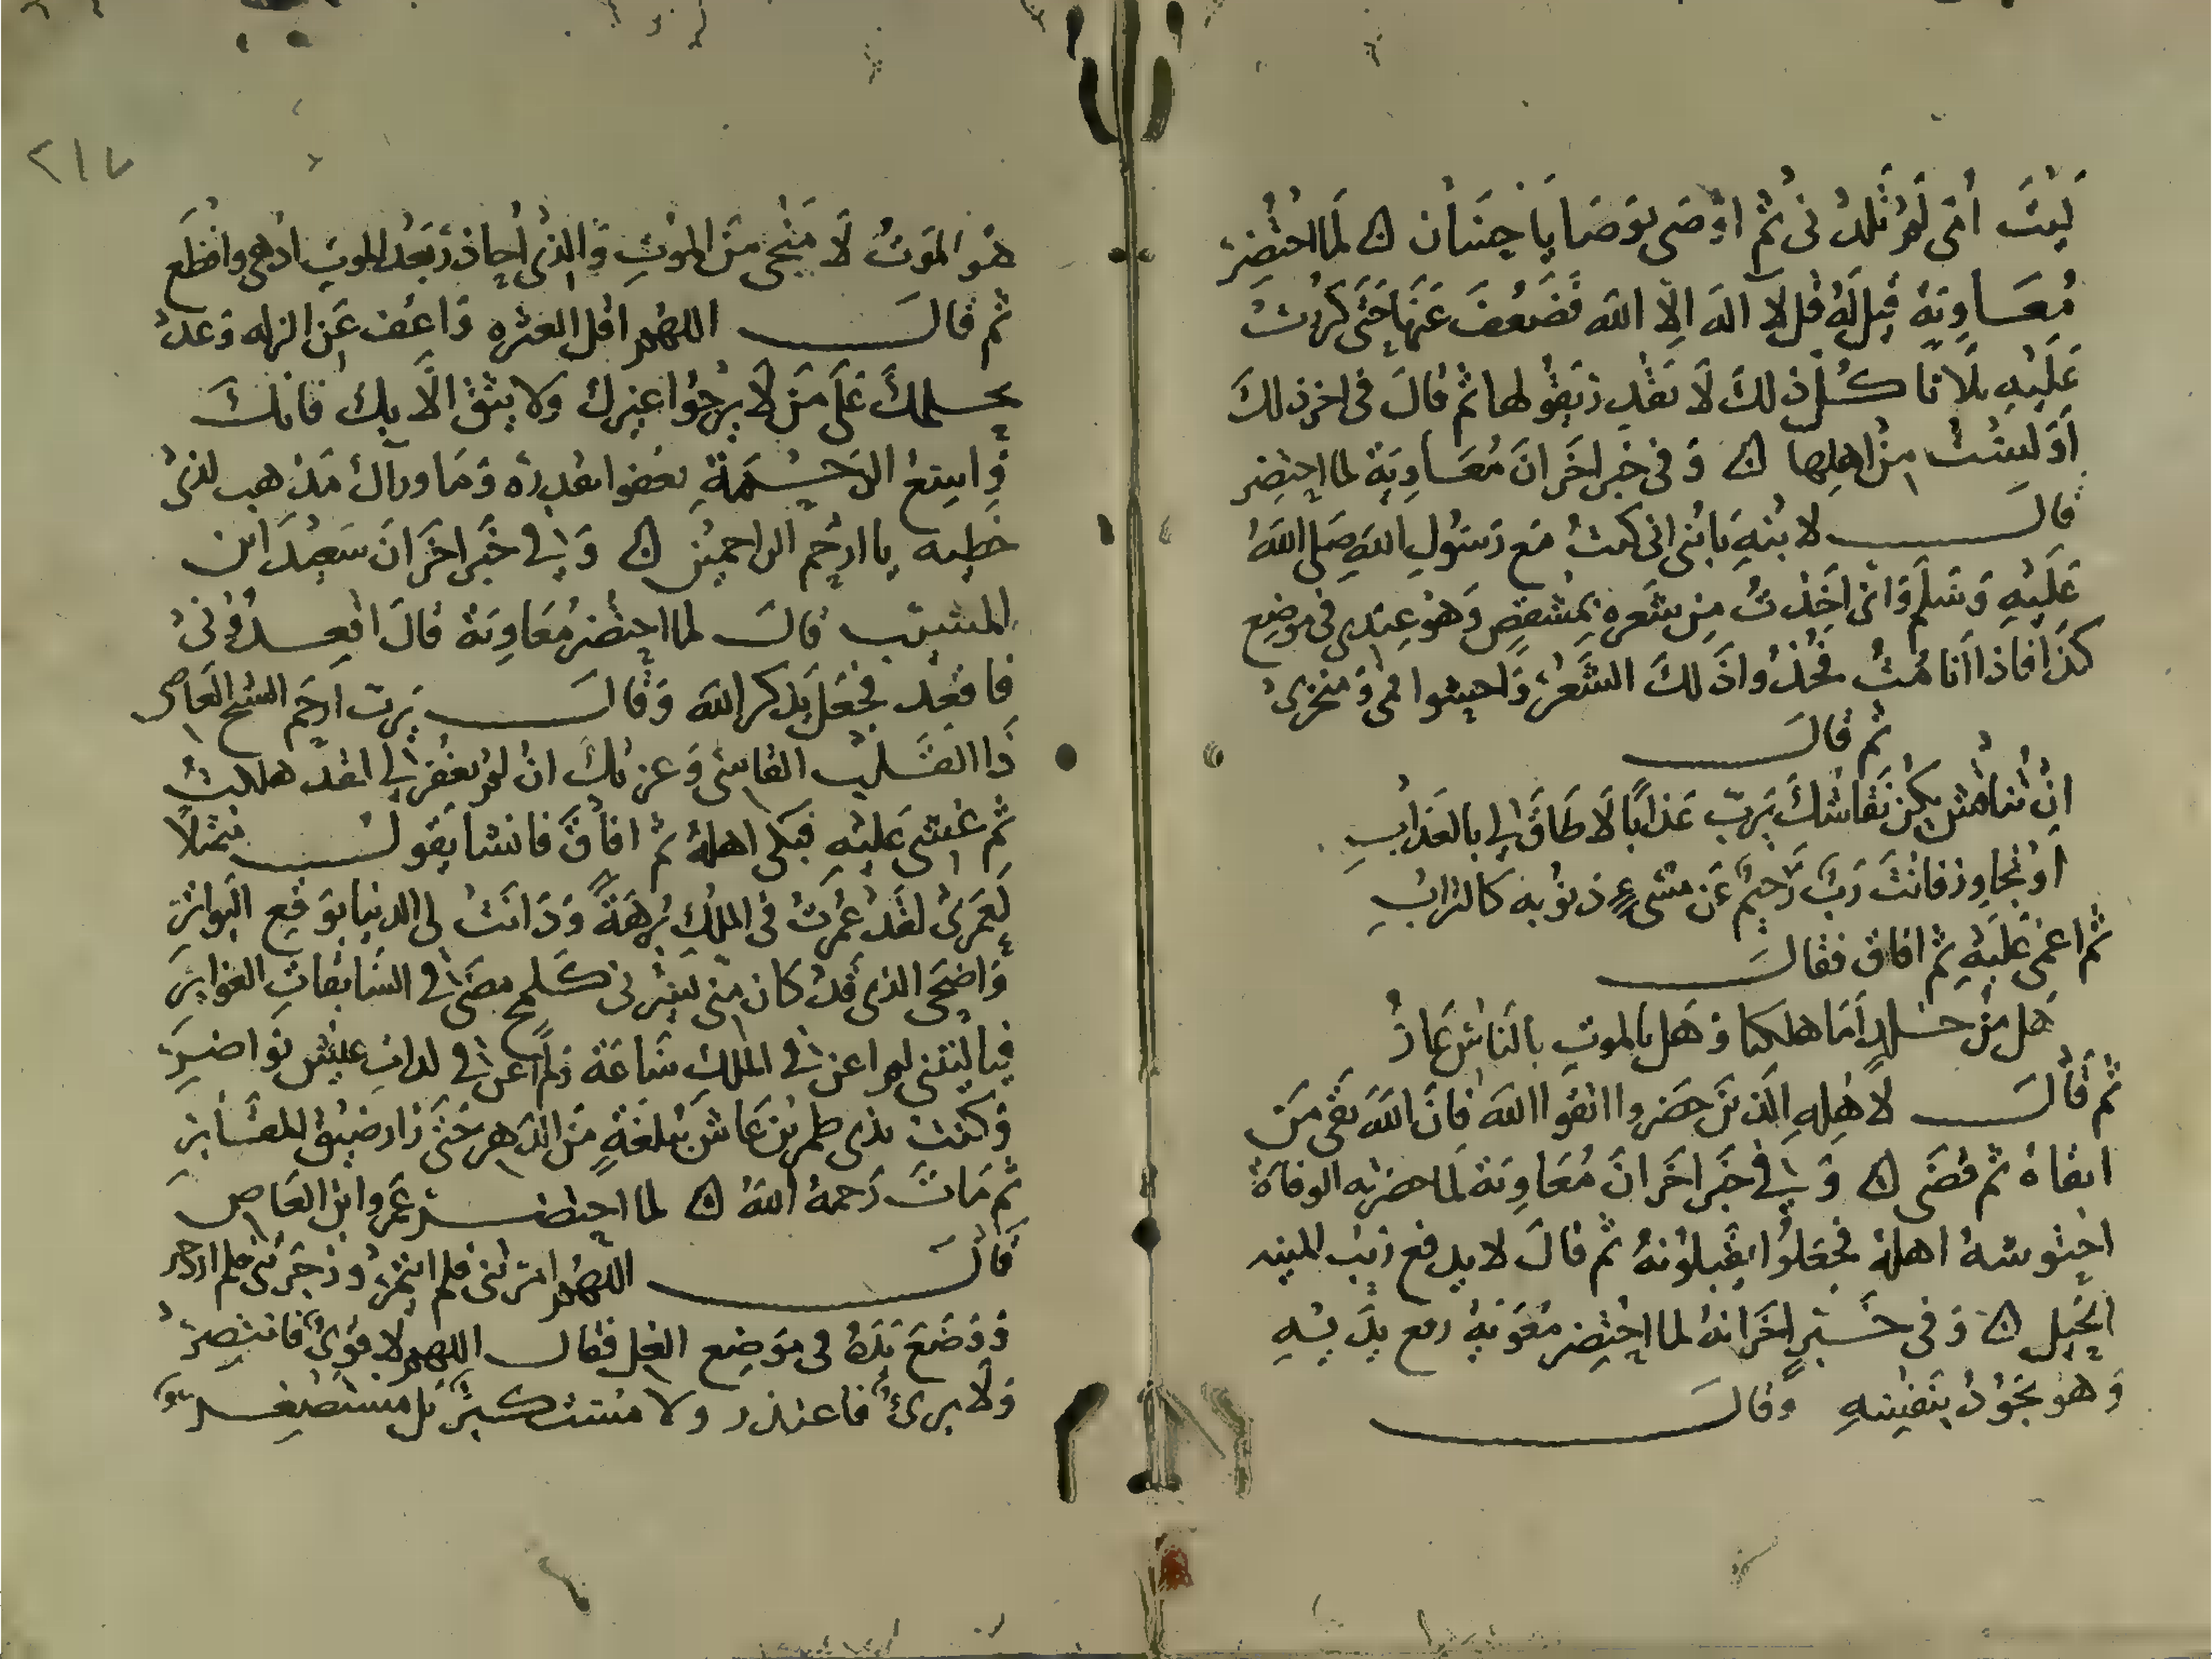 لَيْتَ اُمّى لَمْ تَلِدْنى ثُمَّ اوْصَى بوَصَايَا حِسَان ۞ لَمّا احْتُضِرَ
مُعَاوِيَة قِيل لَهُ قُل لَا اله الّا الله فَضَعُفَ عَنهَا حَتّى كررت
عَلَيْهِ ثلاثا كُل ذلكَ لَا يَقْدِر يَقُولها ثم قالَ فى اخر ذلكَ
اَوَلَسْتُ مِنْ اهلِها ۞ وَفى خبر اخَر انَ مُعَاوِيَة لما احتضِر
قالَ لابنهِ يا بُنى انى كنتُ مَع رَسُولِ اللهِ صَلى اللهُ
عَلَيْهِ وَسَلم وَانى اخَذتُ مِن شَعَره بمِشقصٍ وَهوَ عِندى فى موضع
كذَا فاذا انا مُتُّ فخُذُوا ذَلكَ الشَّعْرَ وَاحشوا به فمى وَمنخرىْ
ثم قالَ
انْ تُناقش يكن نقاشكَ يَربّ عَذابًا لَا طَاقَ لى بالعَذابِ
اوْ تجاوز فانتَ رَبٌّ رَحِيمٌ عَن مسْىءٍ ذنوُبه كالترابِ
ثم اغمى عَلَيهِ ثم افاق فقالَ
هَل مِن خلدٍ اَمّا هلكنا وَهَل بالموتِ بالنَاسِ عَارُ
ثُم قَالَ لاهْلِهِ الّذينَ حَضروا اتقوا اللهَ فانَ اللهَ يقى مَن
اتقاهُ ثم قضَى ۞ وَفي خَبر اخَر انَ مُعَاوِيَة لما حضرته الوفاة
احتوشهُ اهلهُ فجعَلوُا يُقَبلوُنهُ ثم قالَ لا يدفع رَيبَ المنيه
الحِيَل ۞ وَفى خَبَرٍ اخَر انهُ لما احتُضِر معوَيهُ رفع يدَيهِ
وَهوَ يَجوُدُ بنَفسِهِ وَقالَ
هوَ الموَتُ لَا مَنْجَى مِنَ الموْتِ وَالذى اُحاذرُ بَعْدَ الموتِ ادْهى وافظَع
ثم قالَ اللهُم اقل العثره وَاعف عَن الزله وَعدْ
بحلمكَ عَلَى مَنْ لَا يرجُوا غيركَ وَلا يثق الّا بكَ فانكَ
وَاسِعُ الرَحْمَةِ تعفوا بقدره وَمَا وراك مَذهب لذى
خَطِيه يا ارحَم الراحمِينَ ۞ وَفي خَبر اخَر انَ سَعِيدَ ابن
المسَيّب قالَ لما احتضر مُعَاوِيَة قالَ اقعِدُوُنىْ
فاقعد فجَعَل يَذكر اللهَ وَقالَ يَربّ ارحَم الشيخ العَاصى
ذَا القَلب القاسى وَعزتكَ انْ لم تغفر لى لقد هلكتُ
ثم غشى عَليهِ فبكى اهلهُ ثم افاقَ فانشا يَقول متمثلًا
لَعمَرىْ لقَدْ عُمّرتُ فى الملكِ بُرهَةً وَدَانَتْ لى الدنيا بوَقع البَواتر
وَاضحَى الذى قدْ كان منى يَسُرنى كَلمحٍ مضَى فى السَابقاتِ الغوابرِ
فياليتنى لم اعن فى الملك سَاعَة وَلم اعن فى لذاتِ عَيشٍ نَواضرِ
وَكنت كذى طمرين عَاشَ ببلغةٍ مِنَ الدهر حَتّى زارَ ضيق المقَابر
ثم مَاتَ رَحمهُ اللهُ ۞ لما احتضر عَمرو ابن العَاص
قَالَ اللهُم امَرتنى فلم ائتمرْ وَزَجرتَنى فلم ازدجر
وَوَضعَ يَدَهُ فى مَوضع الغل فقالَ اللهم لا قوىٌّ فانتصِرْ
وَلَا برىءٌ فاعتذر ولا مُستكبرٌ بَل مستغفر
٢١٧